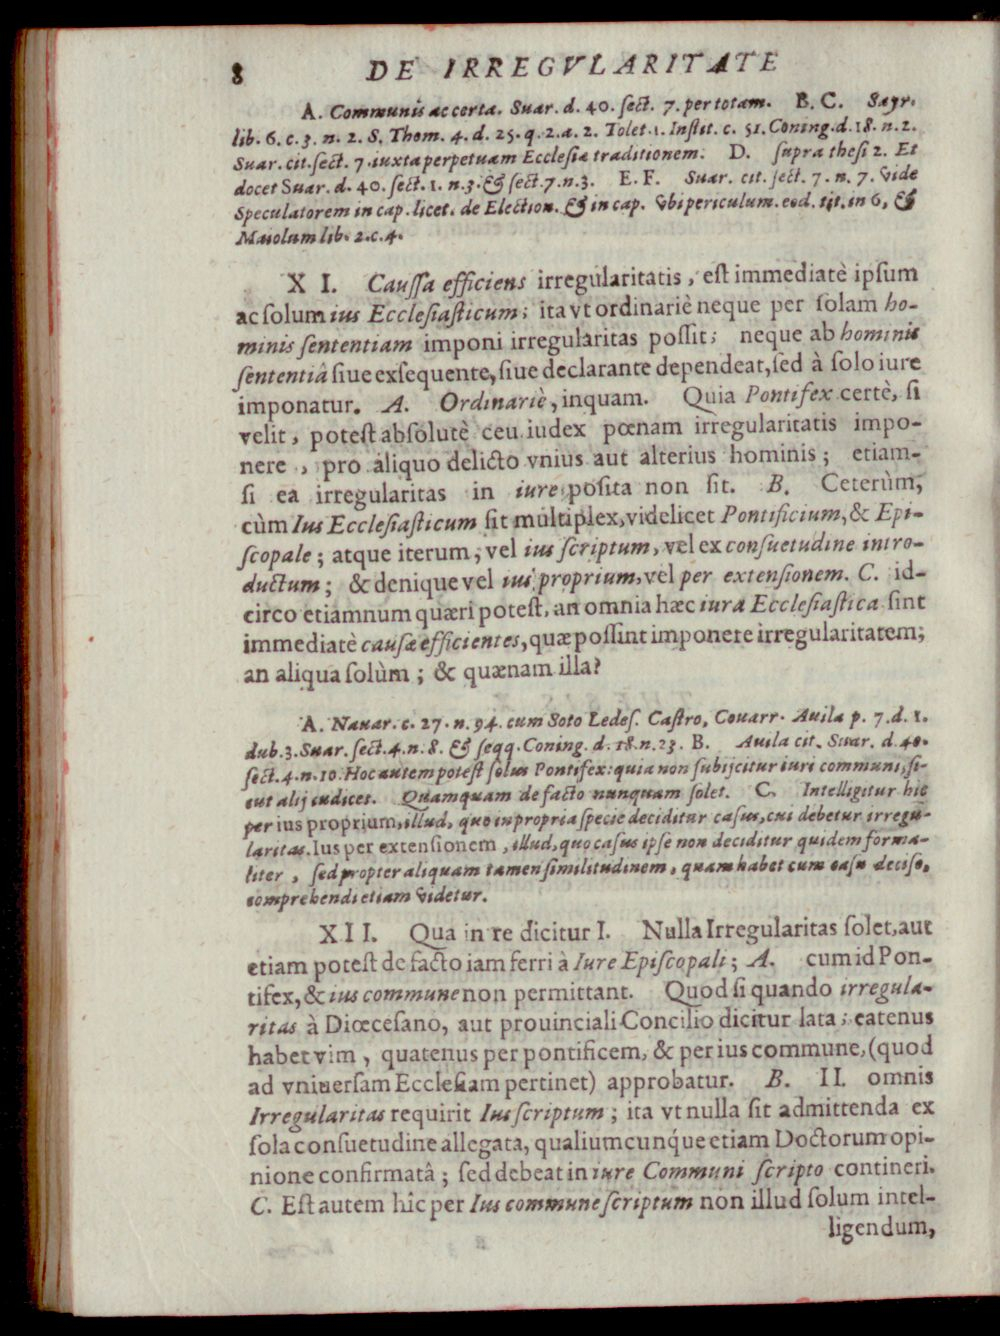 8 DE IRREGVLARITATE
A. Communis ac certa. Suar. d. 40. ſect. 7. per totam. B. C. Sayr.
lib. 6. c. 3. n. 2. S. Thom. 4. d. 25. q. 2. a. 2. Tolet. 1. Inſtit. c. 51. Coning. d. 18. n. 2.
Suar. cit. ſect. 7. iuxta perpetuam Eccleſiæ traditionem. D. ſupra theſi 2. Et
docet Suar. d. 40. ſect. 1. n. 3. & ſect. 7. n. 3. E. F. Suar. cit. ſect. 7. n. 7. vide
Speculatorem in cap. licet. de Election. & in cap. vbi periculum. eod. tit. in 6, &
Maiolum lib. 2. c. 4.
XI. Cauſſa efficiens irregularitatis, eſt immediatè ipſum
ac ſolum ius Eccleſiaſticum; ita vt ordinariè neque per ſolam ho-
minis ſententiam imponi irregularitas poſſit; neque ab hominis
ſententiâ ſiue exſequente, ſiue declarante dependeat, ſed à ſolo iure
imponatur. A. Ordinariè, inquam. Quia Pontifex certè, ſi
velit, poteſt abſolutè ceu iudex pœnam irregularitatis impo-
nere, pro aliquo delicto vnius aut alterius hominis; etiam-
ſi ea irregularitas in iure poſita non ſit. B. Ceterùm,
cùm Ius Eccleſiaſticum ſit multiplex, videlicet Pontificium, & Epi-
ſcopale; atque iterum, vel ius ſcriptum, vel ex conſuetudine intro-
ductum; & denique vel ius proprium, vel per extenſionem. C. id-
circo etiamnum quæri poteſt, an omnia hæc iura Eccleſiaſtica ſint
immediatè cauſæ efficientes, quæ poſſint imponere irregularitatem;
an aliqua ſolùm; & quænam illa?
A. Nauar. c. 27. n. 94. cum Soto Ledeſ. Caſtro, Couarr. Auila p. 7. d. 1.
dub. 3. Suar. ſect. 4. n. 8. & ſeqq. Coning. d. 18. n. 23. B. Auila cit. Suar. d. 40.
ſect. 4. n. 10. Hoc autem poteſt ſolus Pontifex: quia non ſubijcitur iuri communi, ſi-
cut alij iudices. Quamquam de facto nunquam ſolet. C. Intelligitur hic
per ius proprium, illud, quo in propria ſpecie deciditur caſus, cui debetur irregu-
laritas. Ius per extenſionem, illud, quo caſus ipſe non deciditur quidem forma-
liter, ſed propter aliquam tamen ſimilitudinem, quam habet cum caſu deciſo,
comprehendi etiam videtur.
XII. Qua in re dicitur I. Nulla Irregularitas ſolet, aut
etiam poteſt de facto iam ferri à Iure Epiſcopali; A. cum id Pon-
tifex, & ius commune non permittant. Quod ſi quando irregula-
ritas à Diœceſano, aut prouinciali Concilio dicitur lata; eatenus
habet vim, quatenus per pontificem, & per ius commune, (quod
ad vniuerſam Eccleſiam pertinet) approbatur. B. II. omnis
Irregularitas requirit Ius ſcriptum; ita vt nulla ſit admittenda ex
ſola conſuetudine allegata, qualiumcunq́ue etiam Doctorum opi-
nione confirmatâ; ſed debeat in iure Communi ſcripto contineri.
C. Eſt autem hîc per Ius commune ſcriptum non illud ſolum intel-
ligendum,